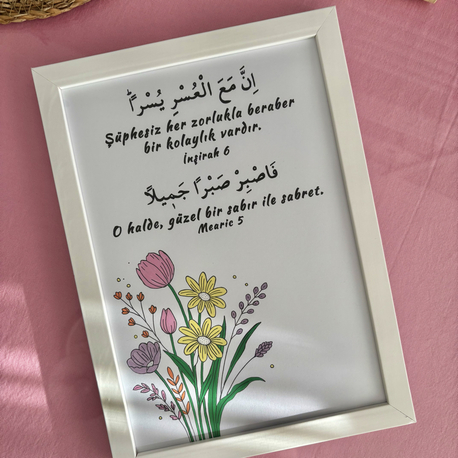 اِنَّ مَعَ الْعُسْرِ يُسْرًاۜ
Şüphesiz her zorlukla beraber
bir kolaylık vardır.
İnşirah 6
فَاصْبِرْ صَبْرًا جَمٖيلًا
O halde, güzel bir sabır ile sabret.
Mearic 5